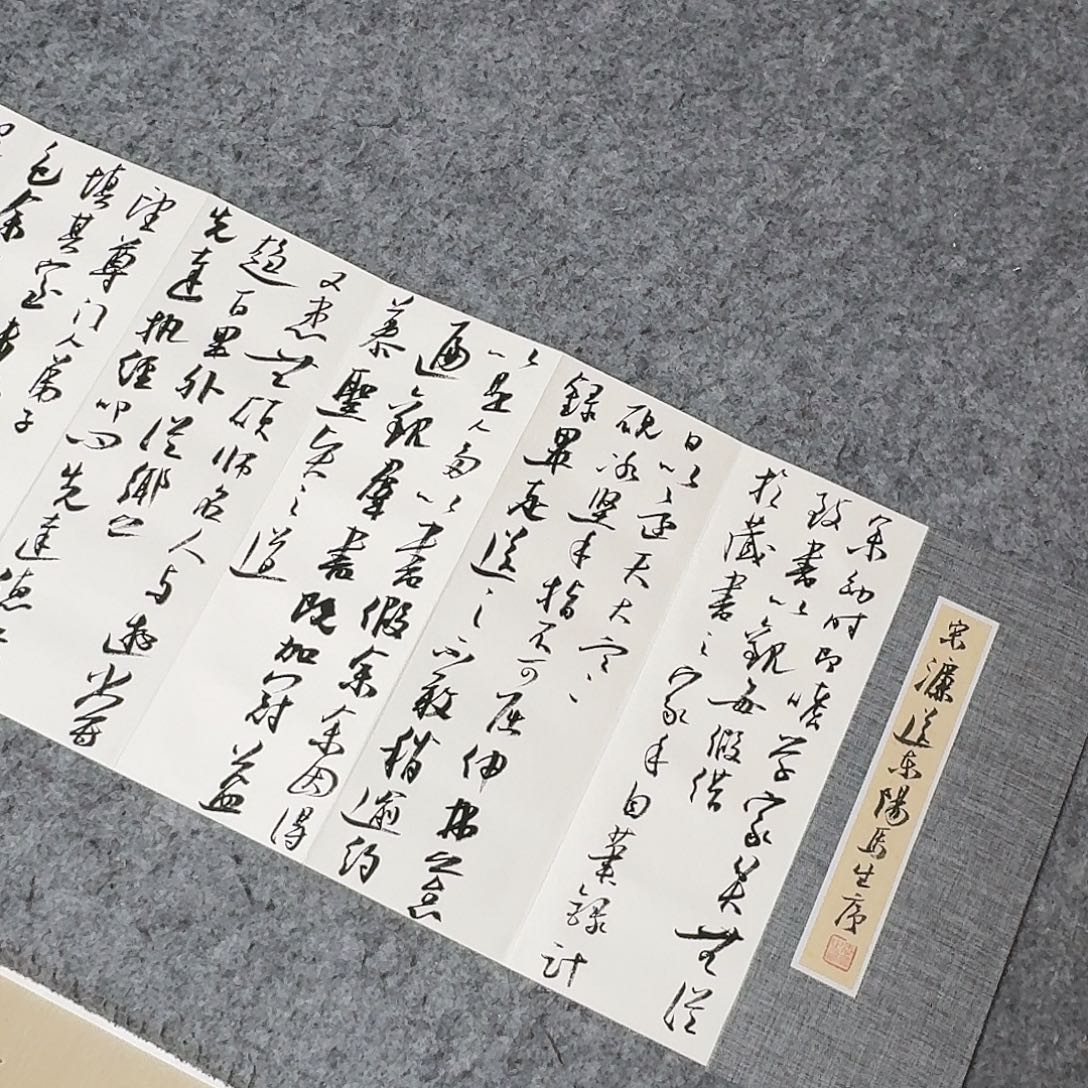 宋濂送东陽馬生序
余幼时即嗜学家贫無從
致書以觀每假借
於藏書之家手自筆録計
日以還天大寒
硯冰堅手指不可屈伸弗之怠
録畢走送之不敢稍逾約
以是人多以書假余余因得
遍觀羣書既加冠益
慕聖賢之道
又患無碩師名人与遊嘗
趨百里外從鄉之
先達執經叩问先達德
望尊门人弟子
填其室未
色余